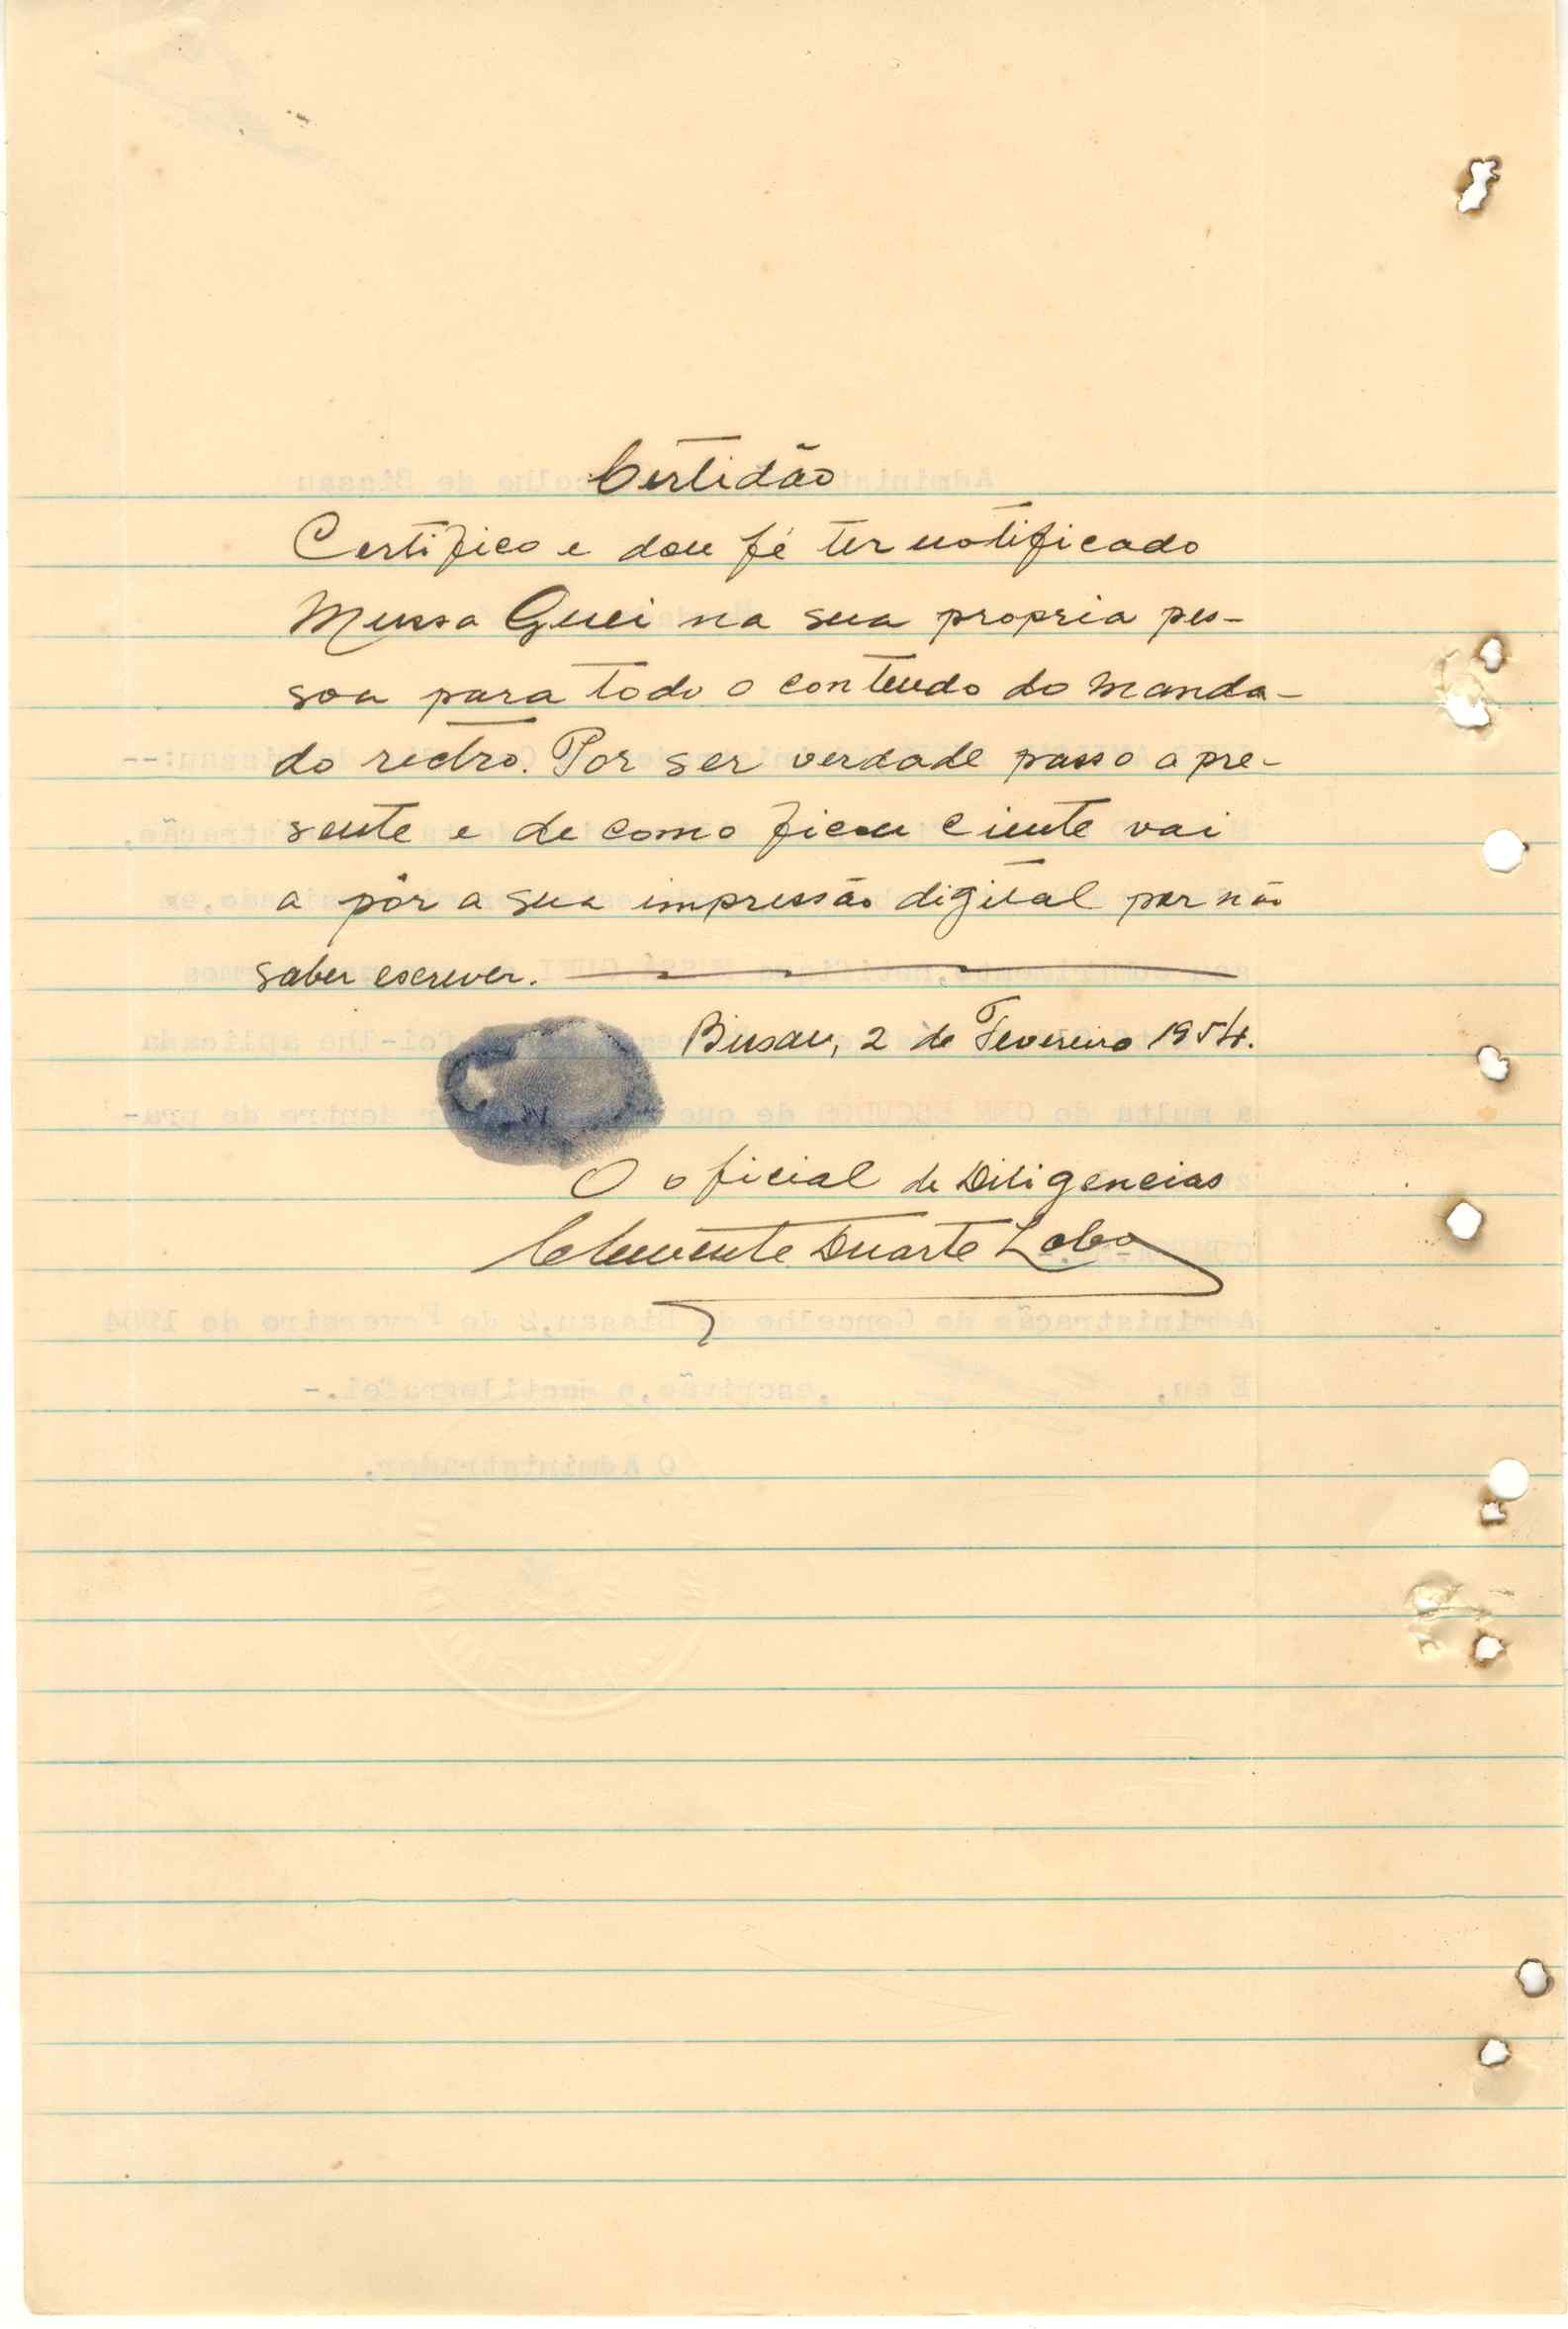 Certidão
Certifico e dou fé ter notificado
Mussa Guei na sua propria pes-
soa para todo o conteudo do manda-
do rectro. Por ser verdade passo a pre-
sente e de como ficou ciente vai
a pôr a sua impressão digital por não
saber escrever.
Bissau, 2 de Fevereiro 1954.
O oficial de Diligencias
Clemente Duarte Lobo